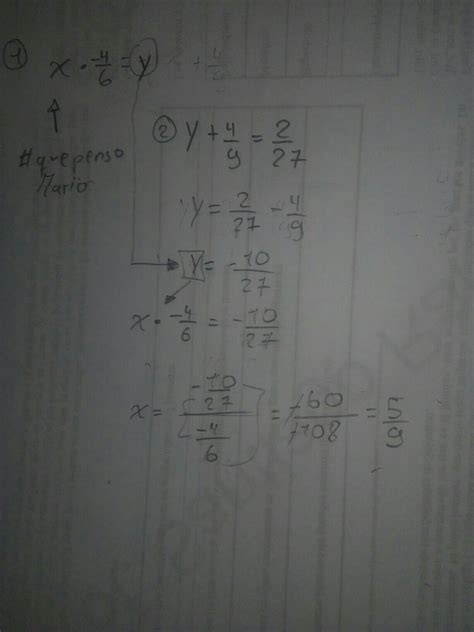 1) x · -4/6 = y + 4/
# que penso
Mario
2) y + 4/9 = 2/27
y = 2/27 - 4/9
y = -10/27
x · -4/6 = -10/27
x = (-10/27)/(-4/6) = -60/-108 = 5/9